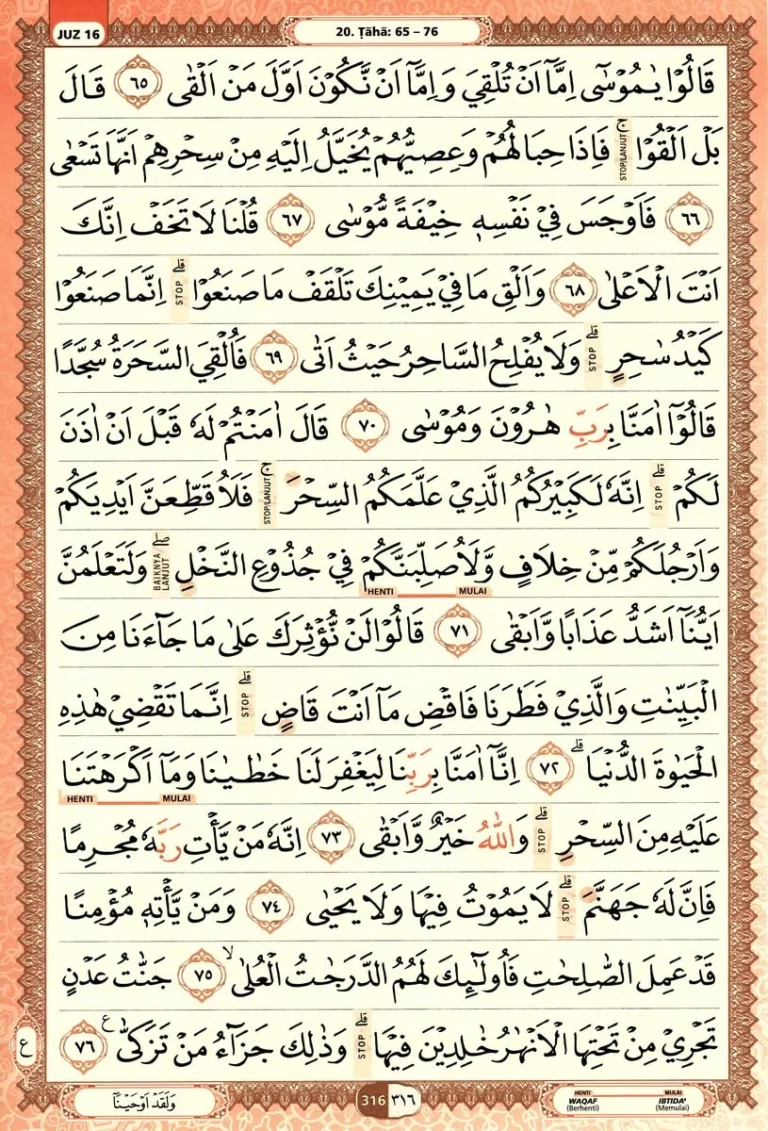 JUZ 16
20. Ṭāhā: 65 – 76
قَالُوْا يٰمُوْسٰٓى اِمَّآ اَنْ تُلْقِيَ وَاِمَّآ اَنْ نَّكُوْنَ اَوَّلَ مَنْ اَلْقٰى ٦٥ قَالَ
بَلْ اَلْقُوْاۚ STOP/LANJUT فَاِذَا حِبَالُهُمْ وَعِصِيُّهُمْ يُخَيَّلُ اِلَيْهِ مِنْ سِحْرِهِمْ اَنَّهَا تَسْعٰى
٦٦ فَاَوْجَسَ فِيْ نَفْسِهٖ خِيْفَةً مُّوْسٰى ٦٧ قُلْنَا لَا تَخَفْ اِنَّكَ
اَنْتَ الْاَعْلٰى ٦٨ وَاَلْقِ مَا فِيْ يَمِيْنِكَ تَلْقَفْ مَا صَنَعُوْاۗ STOP اِنَّمَا صَنَعُوْا
كَيْدُ سٰحِرٍۗ STOP وَلَا يُفْلِحُ السَّاحِرُ حَيْثُ اَتٰى ٦٩ فَاُلْقِيَ السَّحَرَةُ سُجَّدًا
قَالُوْٓا اٰمَنَّا بِرَبِّ هٰرُوْنَ وَمُوْسٰى ٧٠ قَالَ اٰمَنْتُمْ لَهٗ قَبْلَ اَنْ اٰذَنَ
لَكُمْۗ STOP اِنَّهٗ لَكَبِيْرُكُمُ الَّذِيْ عَلَّمَكُمُ السِّحْرَۚ STOP/LANJUT فَلَاُقَطِّعَنَّ اَيْدِيَكُمْ
وَاَرْجُلَكُمْ مِّنْ خِلَافٍ وَّلَاُصَلِّبَنَّكُمْ فِيْ جُذُوْعِ النَّخْلِۖ BAIKNYA LANJUT وَلَتَعْلَمُنَّ
HENTI MULAI
اَيُّنَآ اَشَدُّ عَذَابًا وَّاَبْقٰى ٧١ قَالُوْا لَنْ نُّؤْثِرَكَ عَلٰى مَا جَاۤءَنَا مِنَ
الْبَيِّنٰتِ وَالَّذِيْ فَطَرَنَا فَاقْضِ مَآ اَنْتَ قَاضٍۗ STOP اِنَّمَا تَقْضِيْ هٰذِهِ
الْحَيٰوةَ الدُّنْيَاۗ ٧٢ اِنَّآ اٰمَنَّا بِرَبِّنَا لِيَغْفِرَ لَنَا خَطٰيٰنَا وَمَآ اَكْرَهْتَنَا
HENTI MULAI
عَلَيْهِ مِنَ السِّحْرِۗ STOP وَاللّٰهُ خَيْرٌ وَّاَبْقٰى ٧٣ اِنَّهٗ مَنْ يَّأْتِ رَبَّهٗ مُجْرِمًا
فَاِنَّ لَهٗ جَهَنَّمَۗ STOP لَا يَمُوْتُ فِيْهَا وَلَا يَحْيٰى ٧٤ وَمَنْ يَّأْتِهٖ مُؤْمِنًا
قَدْ عَمِلَ الصّٰلِحٰتِ فَاُولٰۤىِٕكَ لَهُمُ الدَّرَجٰتُ الْعُلٰىۙ ٧٥ جَنّٰتُ عَدْنٍ
تَجْرِيْ مِنْ تَحْتِهَا الْاَنْهٰرُ خٰلِدِيْنَ فِيْهَاۗ STOP وَذٰلِكَ جَزَاۤءُ مَنْ تَزَكّٰى ࣖ ٧٦
ع
وَلَقَدْ اَوْحَيْنَآ
316 ٣١٦
HENTI MULAI
WAQAF IBTIDA'
(Berhenti) (Memulai)